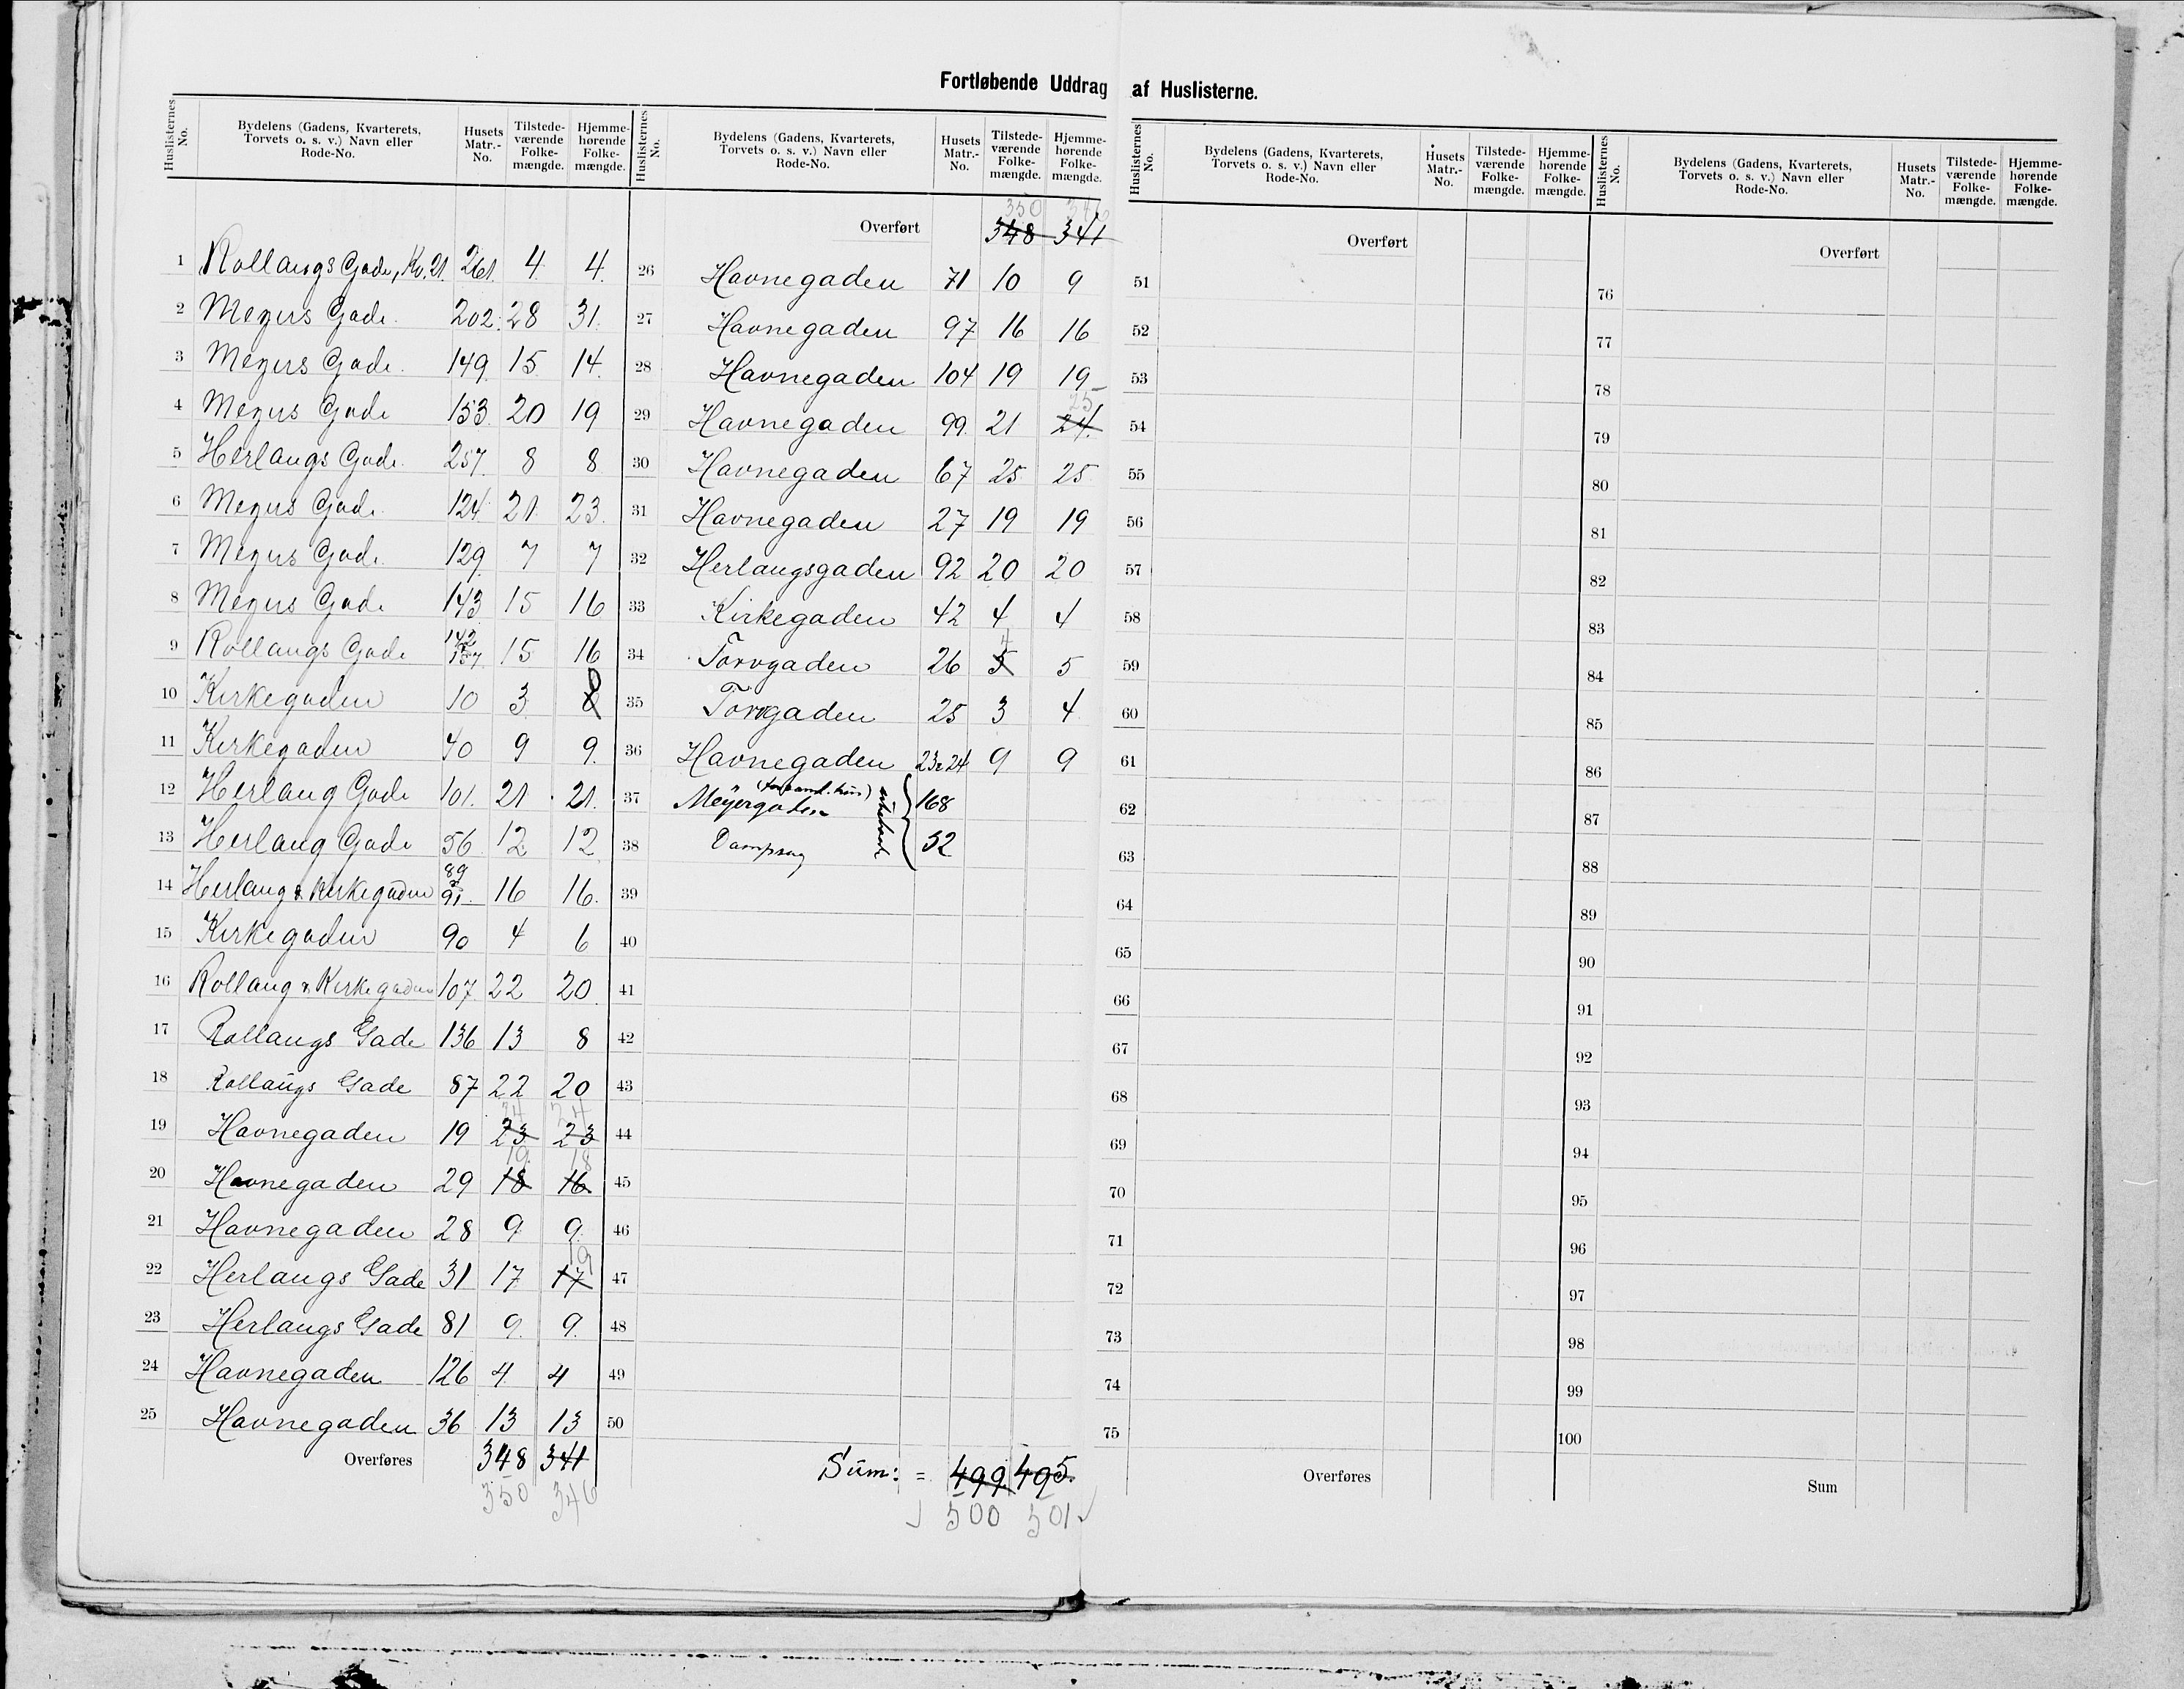 Fortløbende Uddrag af Huslisterne.
Huslisternes No. Bydelens (Gadens, Kvarterets, Torvets o. s. v.) Navn eller Rode-No. Husets Matr.-No. Tilstede-værende Folke-mængde. Hjemme-hørende Folke-mængde.
1 Rollaugs Gade, Kv. 21. 261. 4. 4.
2 Meyers Gade. 202. 28 31.
3 Meyers Gade. 149. 15 14.
4 Meyers Gade 153. 20 19
5 Herlaugs Gade. 257. 8 8
6 Meyers Gade. 124. 21. 23.
7 Meyers Gade. 129. 7 7
8 Meyers Gade 143. 15 16
9 Rollaugs Gade 142 157. 15 16
10 Kirkegaden 10 3
11 Kirkegaden 40 9 9.
12 Herlaug Gade 101. 21. 21.
13 Herlaug Gade 56 12 12
14 Herlaug & Kirkegaden 89 & 91. 16 16.
15 Kirkegaden 90 4 6
16 Rollaug & Kirkegaden 107. 22 20.
17 Rollaugs Gade 136 13 8
18 Rollaugs Gade 87 22 20
24 24
19 Havnegaden 19 23 23
19. 18
20 Havnegaden 29 18 16
21 Havnegaden 28 9. 9.
19
22 Herlaugs Gade 31 17 17
23 Herlaugs Gade 81 9. 9.
24 Havnegaden 126 4. 4
25 Havnegaden 36 13 13
Overføres 348 341
350 346
Huslisternes No. Bydelens (Gadens, Kvarterets, Torvets o. s. v.) Navn eller Rode-No. Husets Matr.-No. Tilstede-værende Folke-mængde. Hjemme-hørende Folke-mængde.
350 346
Overført 348 341
26 Havnegaden 71 10 9
27 Havnegaden 97 16 16
28 Havnegaden 104 19 19
25
29 Havnegaden 99. 21 24.
30 Havnegaden 67 25 25
31 Havnegaden 27 19 19
32 Herlaugsgaden 92 20 20
33 Kirkegaden 42 4 4
4
34 Torvgaden 26 5 5
35 Torvgaden 25 3 4
36 Havnegaden 23 & 24 9 9
37 Meyergaden 168
38 Dampsag 52
39
40
41
42
43
44
45
46
47
48
49
50
Sum: = 499. 495.
500 501
Huslisternes No. Bydelens (Gadens, Kvarterets, Torvets o. s. v.) Navn eller Rode-No. Husets Matr.-No. Tilstede-værende Folke-mængde. Hjemme-hørende Folke-mængde.
Overført
51
52
53
54
55
56
57
58
59
60
61
62
63
64
65
66
67
68
69
70
71
72
73
74
75
Overføres
Huslisternes No. Bydelens (Gadens, Kvarterets, Torvets o. s. v.) Navn eller Rode-No. Husets Matr.-No. Tilstede-værende Folke-mængde. Hjemme-hørende Folke-mængde.
Overført
76
77
78
79
80
81
82
83
84
85
86
87
88
89
90
91
92
93
94
95
96
97
98
99
100
Sum